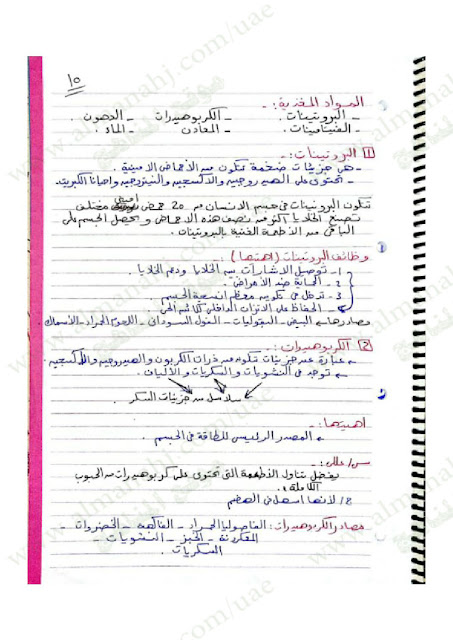 ١٠
المواد المغذية :-
- البروتينات . - الكربوهيدرات - الدهون .
- الفيتامينات . - المعادن - الماء .
1 البروتينات :-
- هي جزيئات ضخمة تتكون من الأحماض الامينية .
- تحتوي على الهيدروجين والاكسجين والنيتروجين واحيانا الكبريت .
تتكون البروتينات في جسم الانسان من 20 حمض اميني مختلف
تصنع الخلايا اكثر من نصف هذه الاحماض ويحصل الجسم على
الباقي من الأطعمة الغنية بالبروتينات .
وظائف البروتينات (اهميتها) :-
1- توصيل الاشارات بين الخلايا ودعم الخلايا .
2- الحماية ضد الأمراض .
3- تدخل في تكوين معظم انسجة الجسم .
- الحفاظ على الاتزان الداخلي
مصادرها :- البيض - البقوليات - الفول السوداني - اللحوم الحمراء - الأسماك .
2 الكربوهيدرات :-
عبارة عن جزيئات تتكون من ذرات الكربون والهيدروجين والاكسجين
توجد في النشويات والسكريات والألياف .
سلاسل من جزيئات السكر .
اهميتها :-
المصدر الرئيسي للطاقة في الجسم .
س/ علل :-
يفضل تناول الأطعمة التي تحتوي على كربوهيدرات من الحبوب
الكاملة .
لأنها اسهل في الهضم
مصادر الكربوهيدرات : الفاصوليا الحمراء - الفاكهة - الخضروات
المكرونة - الخبز - النشويات -
السكريات .
موقع المناهج
www.almanahj.com/uae